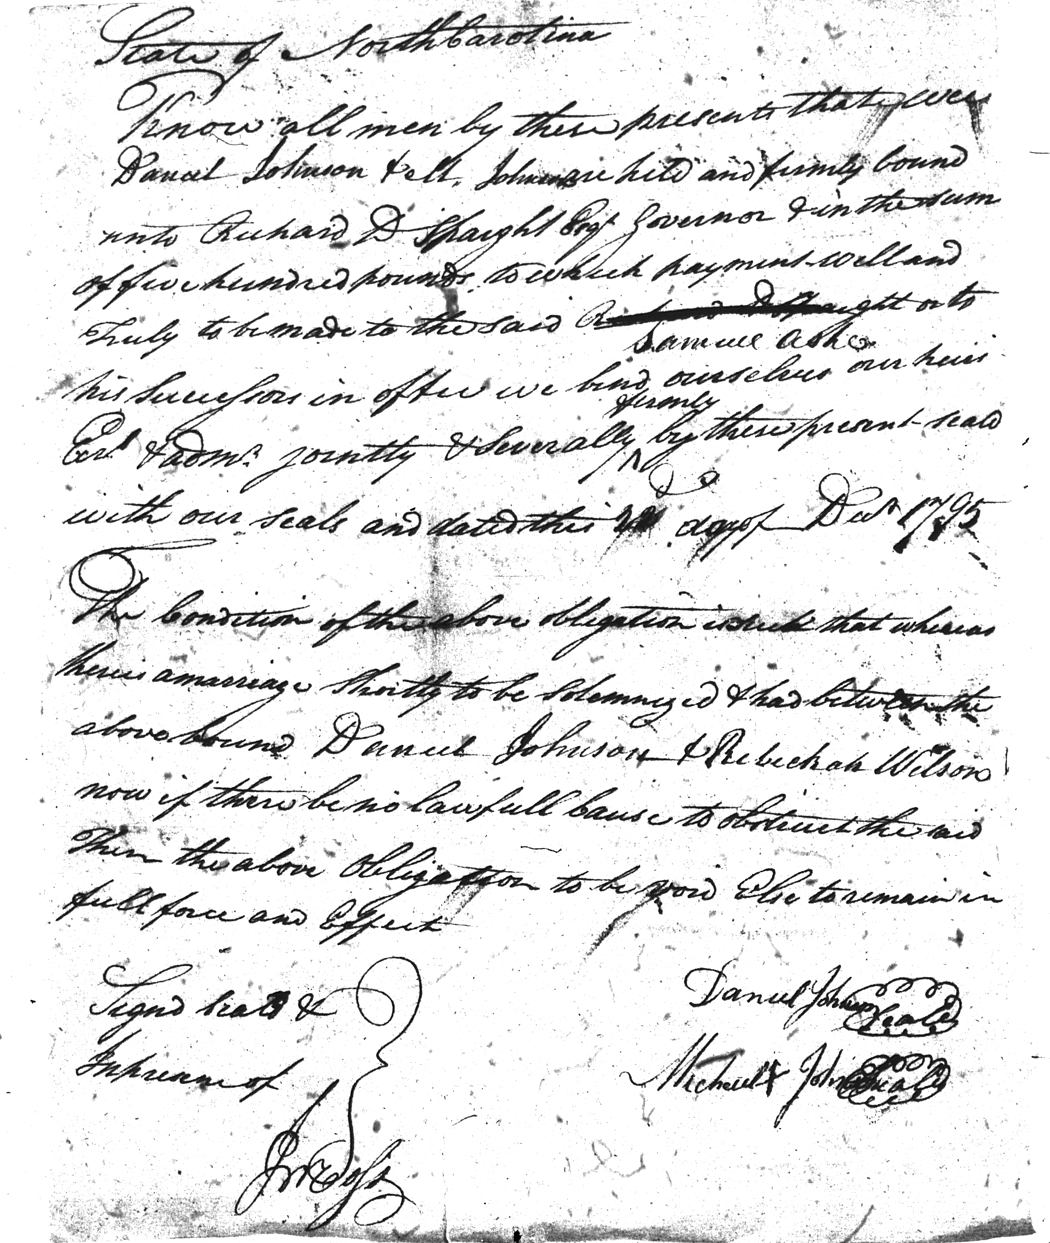 State of North Carolina
Know all men by these presents that we
Daniel Johnson & M. Johnson are held and firmly bound
unto Richard D Spaight Esqr Governor & in the sum
of five hundred pounds to which payment well and
Truly to be made to the said Richard D Spaight or to
Samuel Ashe
his successors in office we bind ourselves our heirs
firmly
Exrs & admrs jointly & severally ^ by these present seald
with our seals and dated this day of Decr 1795
The Condition of the above obligation is such that whereas
there is a marriage Shortly to be Solemnized & had between the
above bound Daniel Johnson & Rebeckah Wilson
now if there be no lawfull Cause to obstruct the said
Then the above Obligation to be void Else to remain in
full force and Effect
Signd Seald & Daniel Johnson Seald
In presence of Michael Johnson Seald